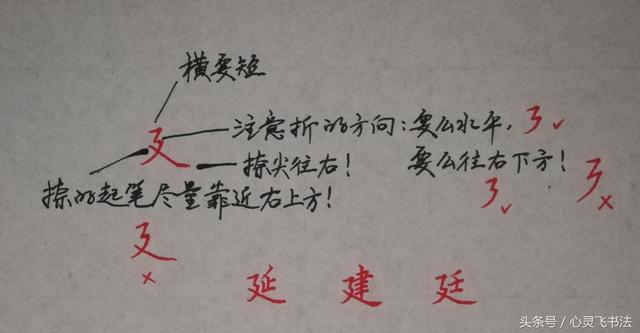 横要短
廴
注意折的方向:要么水平,
捺尖往右! 要么往右下方!
捺的起笔尽量靠近右上方!
廴
延 建 廷
头条号/心灵飞书法